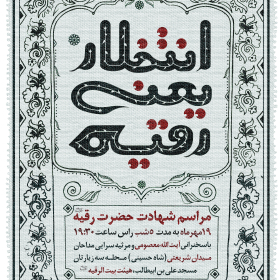 انتظار
یعنی
رقیه
مراسم شهادت حضرت رقیه
۱۹ مهرماه به مدت ۵ شب راس ساعت ۱۹:۳۰
با سخنرانی آیت الله معصومی و مرثیه سرایی مداحان
میدان شریعتی (شاه حسینی) محله سه زیارتان
مسجد علی بن ابیطالب، هیئت بیت الرقیه